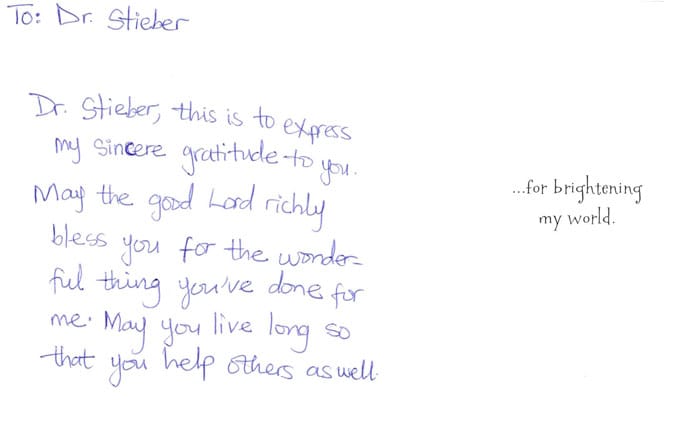 To: Dr. Stieber
Dr. Stieber, this is to express
my sincere gratitude to you.
May the good Lord richly
bless you for the wonder-
ful thing you've done for
me. May you live long so
that you help others as well.
...for brightening
my world.